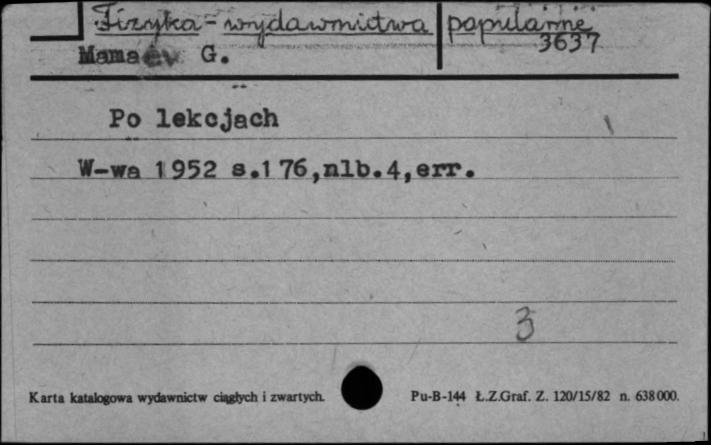 Fizyka - wydawnictwa popularne
3637
Mamaev G.
Po lekcjach
W-wa 1952 s.176,nlb.4,err.
3
Karta katalogowa wydawnictw ciągłych i zwartych.
Pu-B-144 Ł.Z.Graf. Z. 120/15/82 n. 638000.